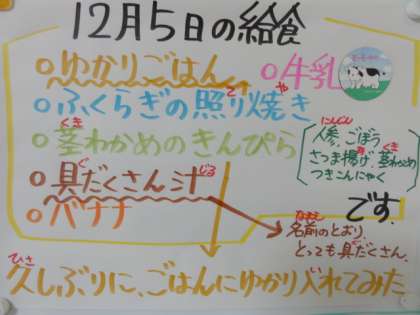 12月5日の給食
ゆかりごはん
牛乳
ふくらぎの照り焼き
茎わかめのきんぴら
人参、ごぼう
さつま揚げ、茎わかめ
つきこんにゃく
具だくさん汁
バナナ
です。
名前のとおり、
とっても具だくさん。
久しぶりに、ごはんにゆかり入れてみた